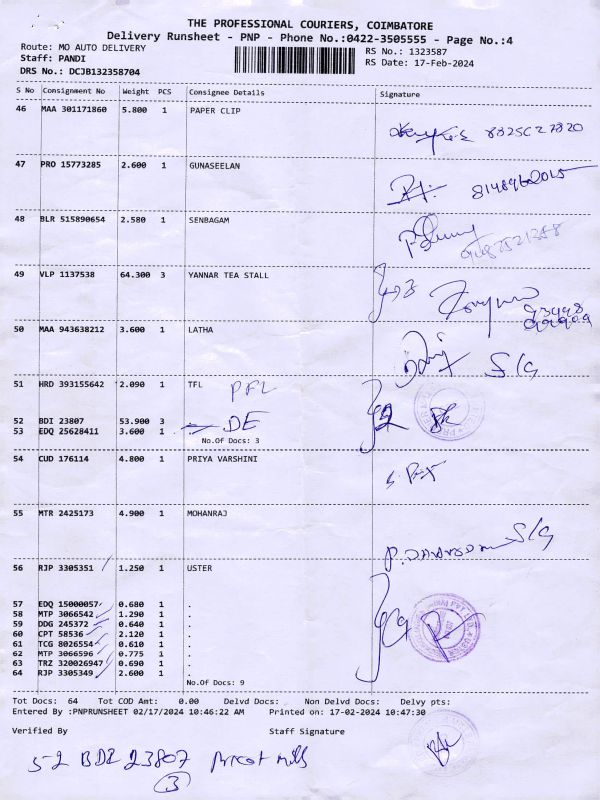 THE PROFESSIONAL COURIERS, COIMBATORE
Delivery Runsheet - PNP - Phone No.:0422-3505555 - Page No.:4
Route: MO AUTO DELIVERY RS No.: 1323587
Staff: PANDI RS Date: 17-Feb-2024
DRS No.: DCJB132358704
S No Consignment No Weight PCS Consignee Details Signature
46 MAA 301171860 5.800 1 PAPER CLIP
47 PRO 15773285 2.600 1 GUNASEELAN
48 BLR 515890654 2.580 1 SENBAGAM
49 VLP 1137538 64.300 3 YANNAR TEA STALL
50 MAA 943638212 3.600 1 LATHA
S/g
51 HRD 393155642 2.090 1 TFL PFL
52 BDI 23807 53.900 3 DE
53 EDQ 25628411 3.600 1 .
No.Of Docs: 3
54 CUD 176114 4.800 1 PRIYA VARSHINI
55 MTR 2425173 4.900 1 MOHANRAJ
S/g
56 RJP 3305351 1.250 1 USTER
57 EDQ 15000057 0.680 1 .
58 MTP 3066542 1.290 1 .
59 DDG 245372 0.640 1 .
60 CPT 58536 2.120 1 .
61 TCG 8026554 0.610 1 .
62 MTP 3066596 0.775 1 .
63 TRZ 320026947 0.690 1 .
64 RJP 3305349 2.600 1 .
No.Of Docs: 9
Tot Docs: 64 Tot COD Amt: 0.00 Delvd Docs: Non Delvd Docs: Delvy pts:
Entered By :PNPRUNSHEET 02/17/2024 10:46:22 AM Printed on: 17-02-2024 10:47:30
Verified By Staff Signature
52 BDI 23807
3